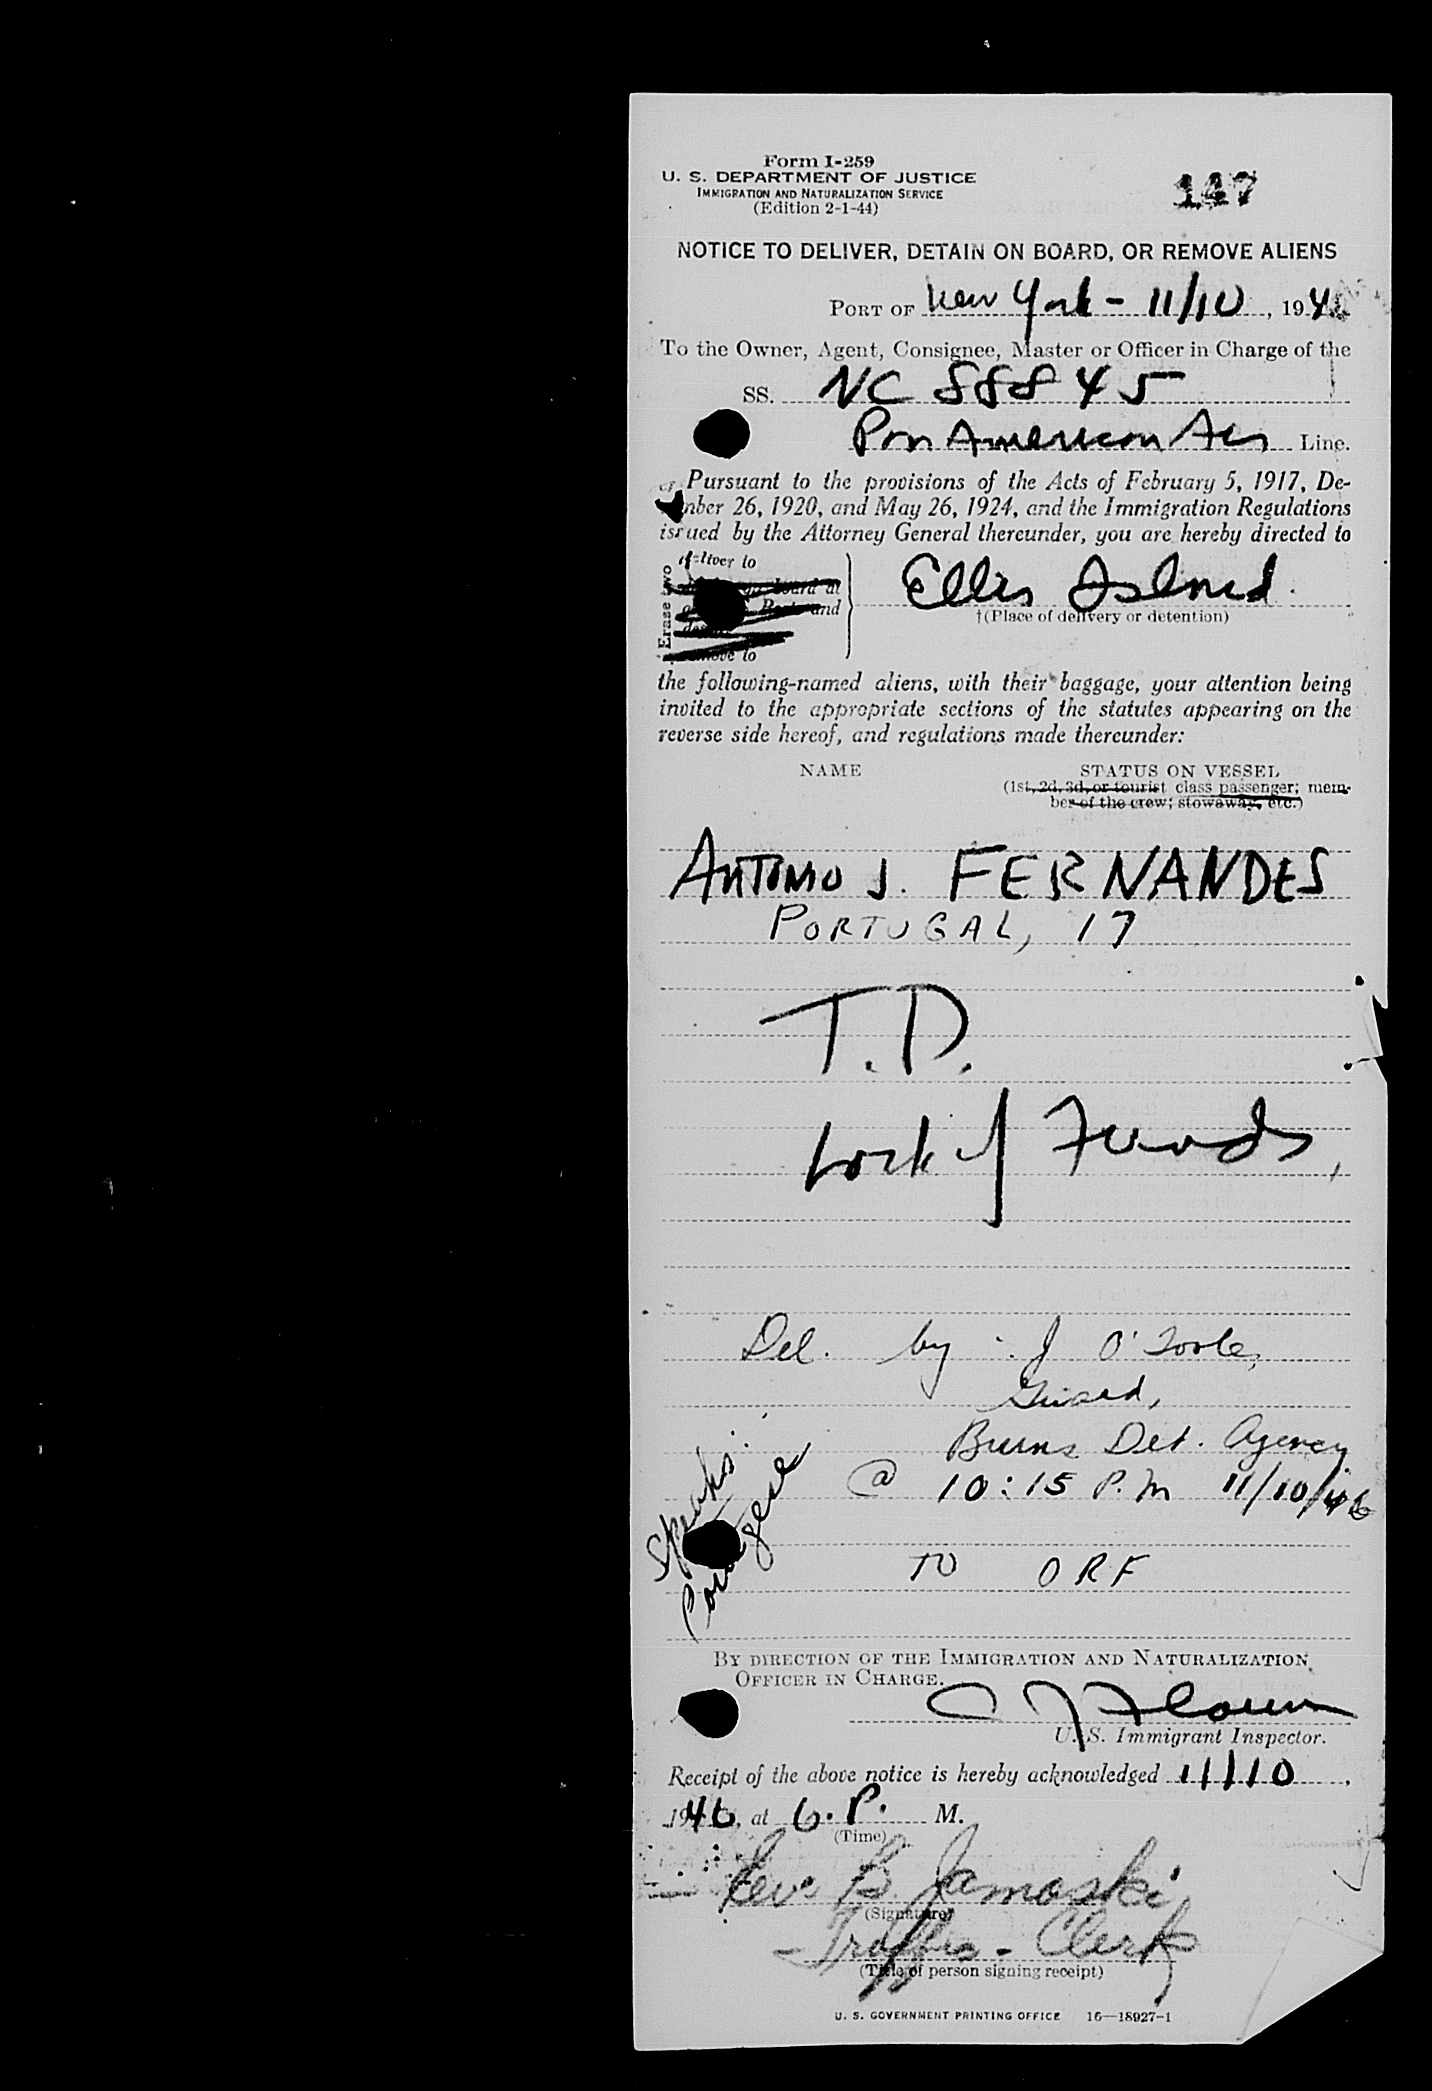 Form I-259
U. S. DEPARTMENT OF JUSTICE
IMMIGRATION AND NATURALIZATION SERVICE
(Edition 2-1-44)
147
NOTICE TO DELIVER, DETAIN ON BOARD, OR REMOVE ALIENS
PORT OF New York - 11/10, 194
To the Owner, Agent, Consignee, Master or Officer in Charge of the
SS. NC 88845
Pan American Air Line.
Pursuant to the provisions of the Acts of February 5, 1917, De-
mber 26, 1920, and May 26, 1924, and the Immigration Regulations
issued by the Attorney General thereunder, you are hereby directed to
Erase two
deliver to
on board at
Port and
move to
Ellis Island.
†(Place of delivery or detention)
the following-named aliens, with their baggage, your attention being
invited to the appropriate sections of the statutes appearing on the
reverse side hereof, and regulations made thereunder:
NAME
STATUS ON VESSEL
(1st, 2d, 3d, or tourist class passenger; mem-
ber of the crew; stowaway, etc.)
ANTONIO J. FERNANDES
PORTUGAL, 17
T.D.
Lack of Funds,
Del. by J O'Toole,
Guard,
Burns Det. Agency
@ 10:15 P.M 11/10/46
Speaks:
Portugese
TO ORF
BY DIRECTION OF THE IMMIGRATION AND NATURALIZATION
OFFICER IN CHARGE.
U. S. Immigrant Inspector.
Receipt of the above notice is hereby acknowledged 11/10,
1946, at 6. P. M.
(Time)
B. Jamoski
(Signature)
Traffic - Clerk
(Title of person signing receipt)
U. S. GOVERNMENT PRINTING OFFICE 16—18927-1